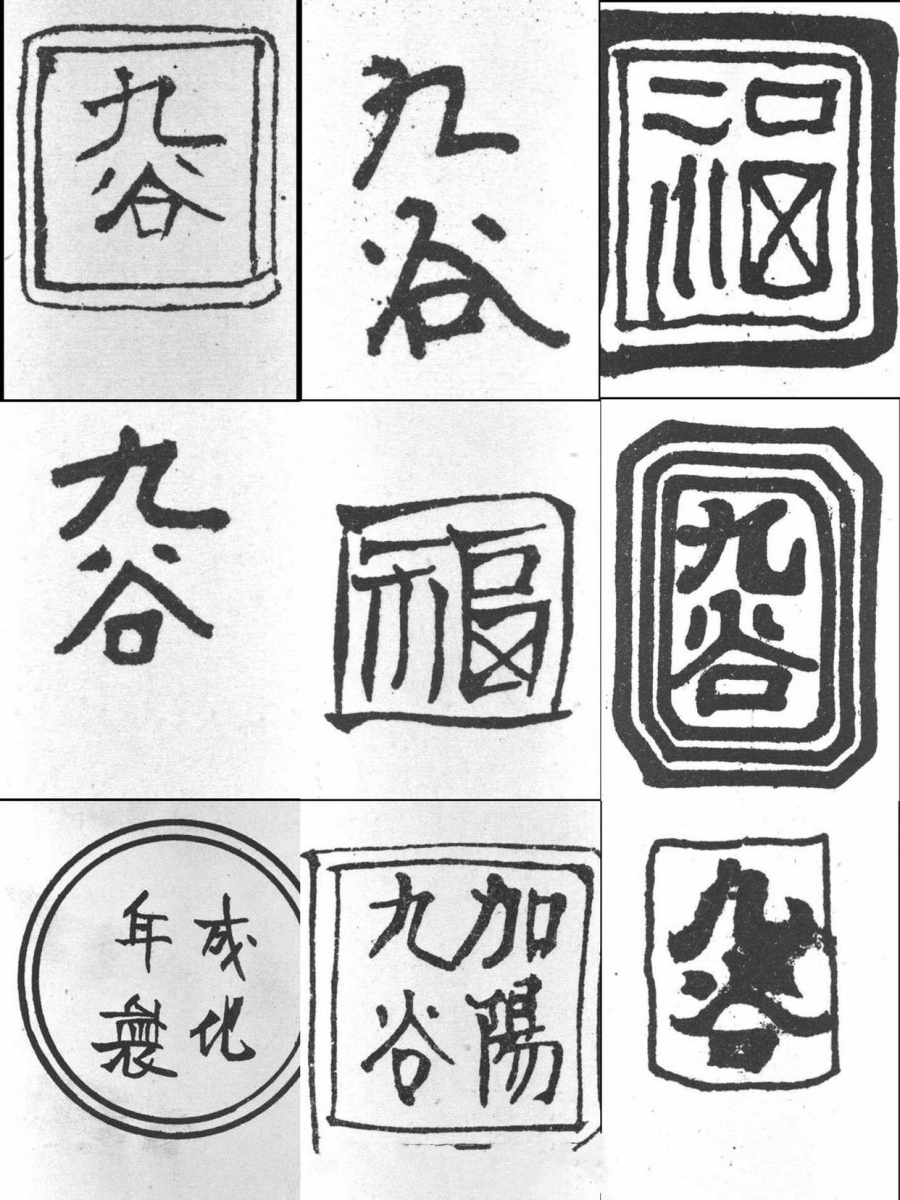 九谷
九谷
福
九谷
福
九谷
成化
年製
加陽
九谷
九谷